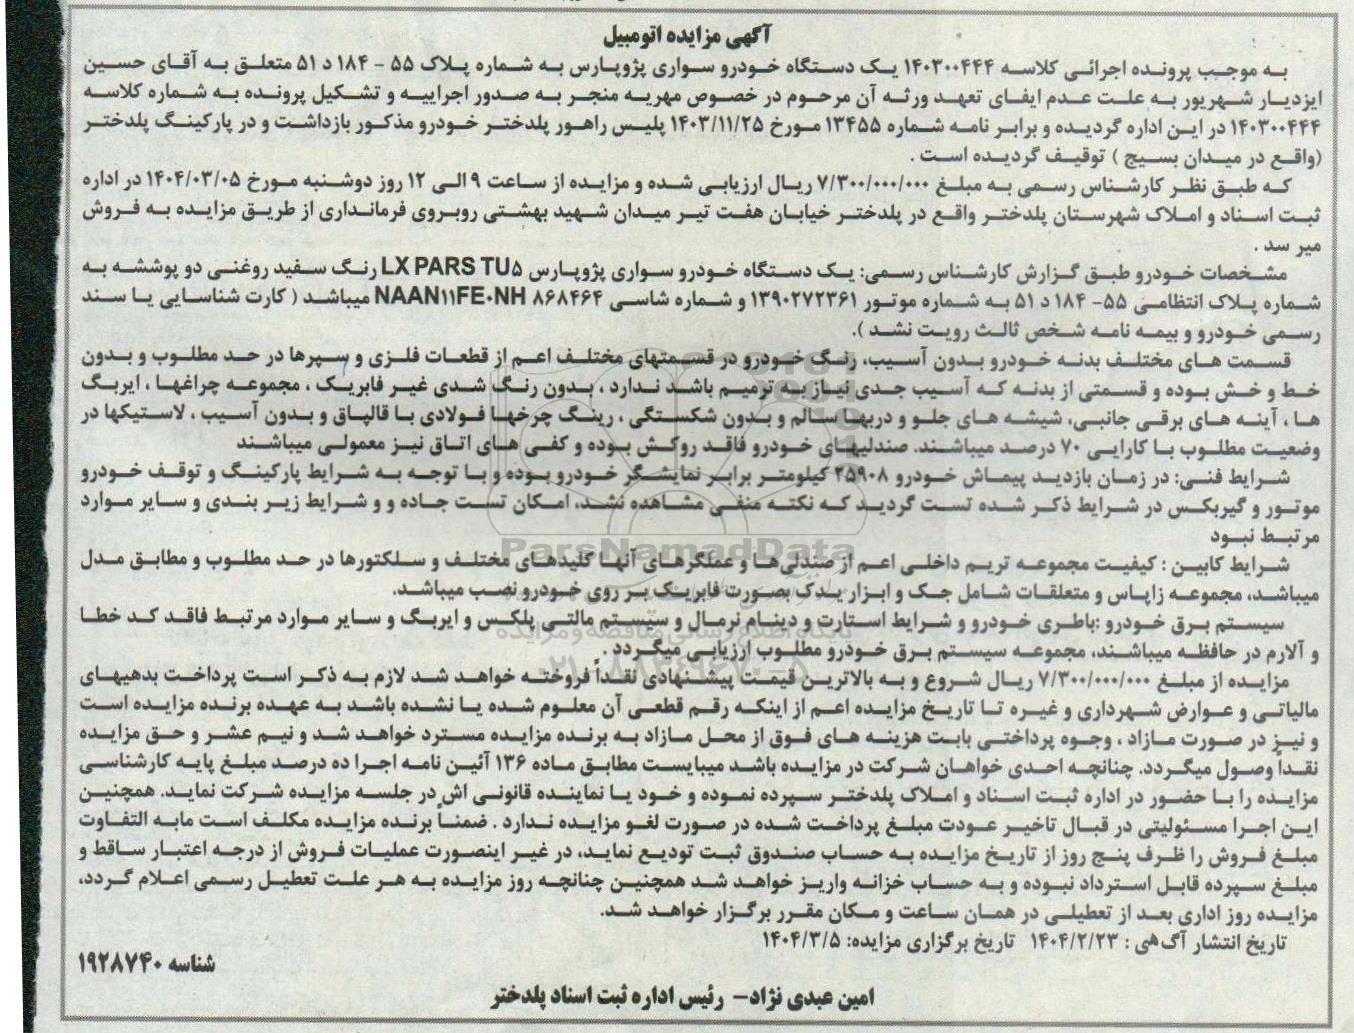 آگهی مزایده اتومبیل
به موجب پرونده اجرائی کلاسه ۱۴۰۳۰۰۴۴۴ یک دستگاه خودرو سواری پژوپارس به شماره پلاک ۵۵ - ۱۸۴ د ۵۱ متعلق به آقای حسین
ایزدیار شهرپور به علت عدم ایفای تعهد ورثه آن مرحوم در خصوص مهریه منجر به صدور اجراییه و تشکیل پرونده به شماره کلاسه
۱۴۰۳۰۰۴۴۴ در این اداره گردیده و برابر نامه شماره ۱۳۴۵۵ مورخ ۱۴۰۳/۱۱/۲۵ پلیس راهور پلدختر خودرو مذکور بازداشت و در پارکینگ پلدختر
(واقع در میدان بسیج ) توقیف گردیده است .
که طبق نظر کارشناس رسمی به مبلغ ۷/۳۰۰/۰۰۰/۰۰۰ ریال ارزیابی شده و مزایده از ساعت ۹ الی ۱۲ روز دوشنبه مورخ ۱۴۰۴/۰۳/۰۵ در اداره
ثبت اسناد و املاک شهرستان پلدختر واقع در پلدختر خیابان هفت تیر میدان شهید بهشتی روبروی فرمانداری از طریق مزایده به فروش
میر سد .
مشخصات خودرو طبق گزارش کارشناس رسمی: یک دستگاه خودرو سواری پژوپارس LX PARS TU۵ رنگ سفید روغنی دو پوششه به
شماره پلاک انتظامی ۵۵- ۱۸۴ د ۵۱ به شماره موتور ۱۳۹۰۲۷۲۳۶۱ و شماره شاسی NAAN۱۱FE۰NH ۸۶۸۴۶۴ میباشد ( کارت شناسایی یا سند
رسمی خودرو و بیمه نامه شخص ثالث رویت نشد ).
قسمت های مختلف بدنه خودرو بدون آسیب، رنگ خودرو در قسمتهای مختلف اعم از قطعات فلزی و سپرها در حد مطلوب و بدون
خط و خش بوده و قسمتی از بدنه که آسیب جدی نیاز به ترمیم باشد ندارد ، بدون رنگ شدی غیر فابریک ، مجموعه چراغها ، ایربگ
ها ، آینه های برقی جانبی، شیشه های جلو و دربها سالم و بدون شکستگی ، رینگ چرخها فولادی با قالپاق و بدون آسیب ، لاستیکها در
وضعیت مطلوب با کارایی ۷۰ درصد میباشند. صندلیهای خودرو فاقد روکش بوده و کفی های اتاق نیز معمولی میباشند
شرایط فنی: در زمان بازدید پیمایش خودرو ۴۵۹۰۸ کیلومتر برابر نمایشگر خودرو بوده و با توجه به شرایط پارکینگ و توقف خودرو
موتور و گیربکس در شرایط ذکر شده تست گردید که نکته منفی مشاهده نشد، امکان تست جاده و و شرایط زیر بندی و سایر موارد
مرتبط نبود
ParsNamadData
شرایط کابین : کیفیت مجموعه تریم داخلی اعم از صندلی‌ها و عملگرهای آنها کلیدهای مختلف و سلکتورها در حد مطلوب و مطابق مدل
میباشد، مجموعه زاپاس و متعلقات شامل جک و ابزار یدک بصورت فابریک بر روی خودرو نصب میباشد.
سیستم برق خودرو :باطری خودرو و شرایط استارت و دینام نرمال و سیستم مالتی پلکس و ایربگ و سایر موارد مرتبط فاقد کد خطا
پایگاه اطلاع رسانی مناقصه و مزایده
و آلارم در حافظه میباشند، مجموعه سیستم برق خودرو مطلوب ارزیابی میگردد .
مزایده از مبلغ ۷/۳۰۰/۰۰۰/۰۰۰ ریال شروع و به بالاترین قیمت پیشنهادی نقداً فروخته خواهد شد لازم به ذکر است پرداخت بدهیهای
مالیاتی و عوارض شهرداری و غیره تا تاریخ مزایده اعم از اینکه رقم قطعی آن معلوم شده یا نشده باشد به عهده برنده مزایده است
و نیز در صورت مازاد ، وجوه پرداختی بابت هزینه های فوق از محل مازاد به برنده مزایده مسترد خواهد شد و نیم عشر و حق مزایده
نقداً وصول میگردد. چنانچه احدی خواهان شرکت در مزایده باشد میبایست مطابق ماده ۱۳۶ آئین نامه اجرا ده درصد مبلغ پایه کارشناسی
مزایده را با حضور در اداره ثبت اسناد و املاک پلدختر سپرده نموده و خود یا نماینده قانونی اش در جلسه مزایده شرکت نماید. همچنین
این اجرا مسئولیتی در قبال تاخیر عودت مبلغ پرداخت شده در صورت لغو مزایده ندارد . ضمناً برنده مزایده مکلف است مابه التفاوت
مبلغ فروش را ظرف پنج روز از تاریخ مزایده به حساب صندوق ثبت تودیع نماید، در غیر اینصورت عملیات فروش از درجه اعتبار ساقط و
مبلغ سپرده قابل استرداد نبوده و به حساب خزانه واریز خواهد شد همچنین چنانچه روز مزایده به هر علت تعطیل رسمی اعلام گردد،
مزایده روز اداری بعد از تعطیلی در همان ساعت و مکان مقرر برگزار خواهد شد.
تاریخ انتشار آگهی : ۱۴۰۴/۲/۲۳ تاریخ برگزاری مزایده: ۱۴۰۴/۳/۵
شناسه ۱۹۲۸۷۴۰
امین عبدی نژاد– رئیس اداره ثبت اسناد پلدختر